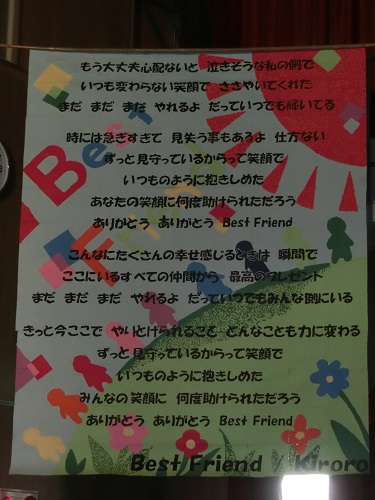 Best
Friend
もう大丈夫心配ないと 泣きそうな私の側で
いつも変わらない笑顔で ささやいてくれた
まだ まだ まだ やれるよ だっていつでも輝いてる
時には急ぎすぎて 見失う事もあるよ 仕方ない
ずっと見守っているからって笑顔で
いつものように抱きしめた
あなたの笑顔に何度助けられただろう
ありがとう ありがとう Best Friend
こんなにたくさんの幸せ感じるときは 瞬間で
ここにいるすべての仲間から 最高のプレゼント
まだ まだ まだ やれるよ だっていつでもみんな側にいる
きっと今ここで やりとげられること どんなことも力に変わる
ずっと見守っているからって笑顔で
いつものように抱きしめた
みんなの笑顔に 何度助けられただろう
ありがとう ありがとう Best Friend
Best Friend / Kiroro